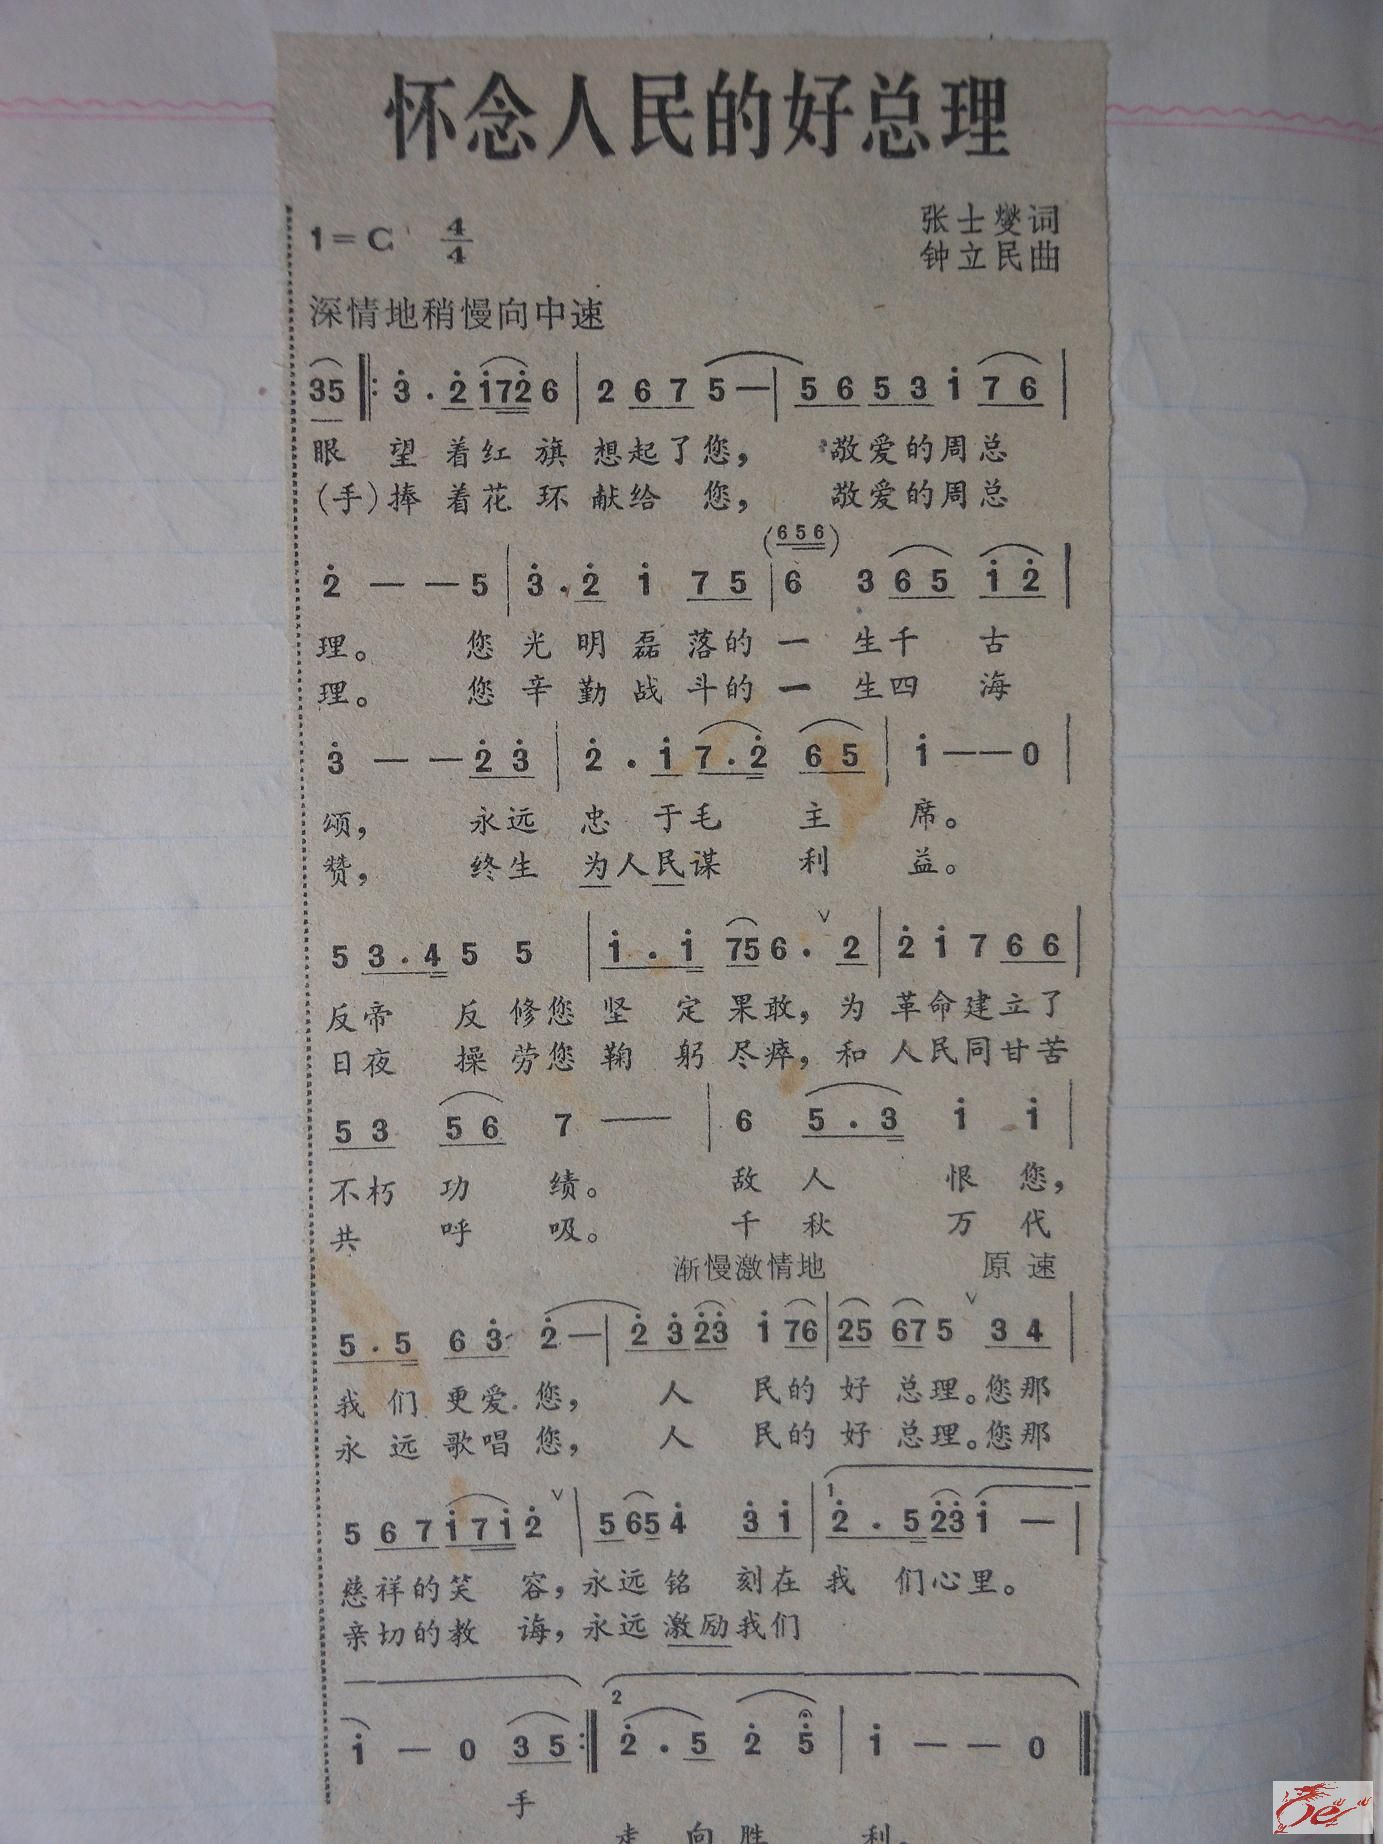 怀念人民的好总理
1=C 4/4
张士燮词
钟立民曲
深情地稍慢向中速
35 ‖: 3̇ . 2̇ 1̇72̇ 6 | 2 6 7 5 — | 5 6 5 3 1̇ 7 6 |
眼 望 着红 旗 想起了您， 敬爱的周总
(手)捧 着花 环 献给 您， 敬爱的周总
(656)
2̇ — — 5 | 3̇ . 2̇ 1̇ 7 5 | 6 3 6 5 1̇ 2̇ |
理。 您 光 明 磊 落的 一 生千 古
理。 您 辛 勤 战 斗的 一 生四 海
3̇ — — 2̇ 3̇ | 2̇ . 1̇ 7 . 2̇ 6 5 | 1̇ — — 0 |
颂， 永远 忠 于毛 主 席。
赞， 终生 为人民谋 利 益。
5 3 . 4 5 5 | 1̇ . 1̇ 75 6 . ∨ 2 | 2̇ 1̇ 7 6 6 |
反帝 反 修您 坚 定 果敢，为 革命建立了
日夜 操 劳您 鞠 躬 尽瘁，和 人民同甘苦
5 3 5 6 7 — — | 6 5 . 3 1̇ 1̇ |
不朽 功 绩。 敌 人 恨 您，
共 呼 吸。 千 秋 万 代
渐慢激情地 原 速
5 . 5 6 3̇ 2̇ — | 2̇ 3̇ 2̇3̇ 1̇ 76 | 25 67 5 ∨ 3 4 |
我 们 更爱 您， 人 民的 好 总理。您那
永 远 歌唱 您， 人 民的 好 总理。您那
5 6 7 1̇ 7 1̇ 2̇ ∨ | 5 65 4̇ 3̇ 1̇ | 1 2̇ . 5 2̇3̇ 1̇ — |
慈祥的笑 容，永远 铭 刻在 我 们心里。
亲切的教 诲，永远 激励我们
1̇ — 0 3 5 :‖ 2 2̇ . 5 2̇ 5̇ | 1̇ — — 0 ‖
手
走 向 胜 利。